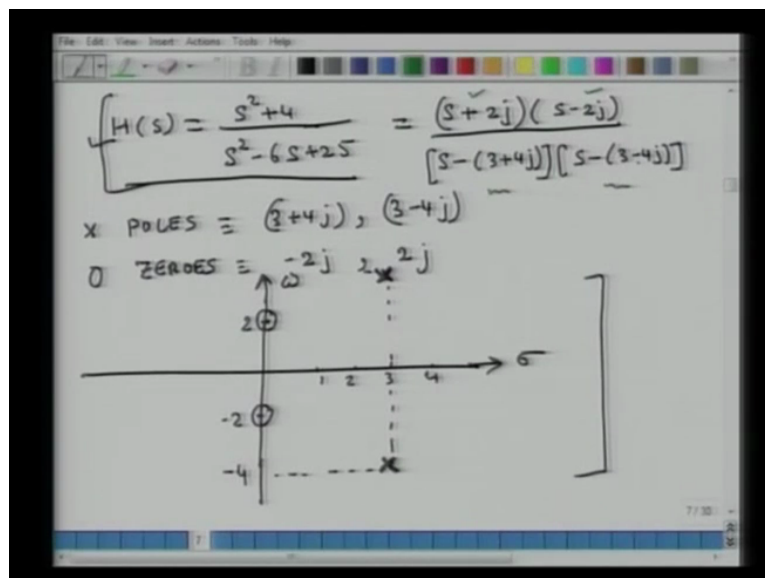 File Edit View Insert Actions Tools Help
H(s) = (s²+4)/(s²-6s+25) = (s+2j)(s-2j)/[s-(3+4j)][s-(3-4j)]
x POLES ≡ (3+4j), (3-4j)
0 ZEROES ≡ -2j, 2j
ω
2
σ
1 2 3 4
-2
-4
7/30
7